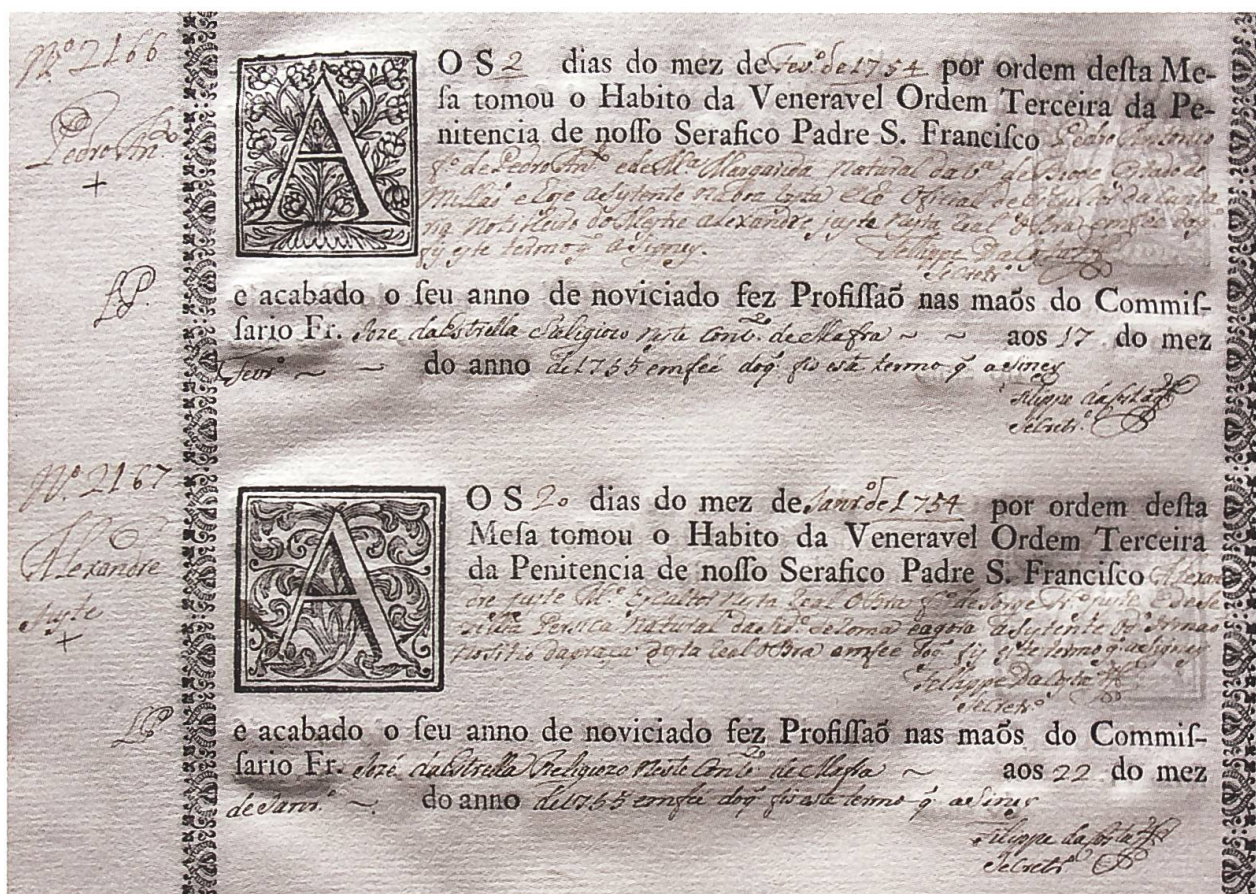 Nº 2166
Pedro Antº
AOS 2 dias do mez de Fevº de 1754 por ordem desta Me-
ſa tomou o Habito da Veneravel Ordem Terceira da Pe-
nitencia de noſſo Serafico Padre S. Franciſco Pedro Antonio
fº de Pedro Antº e de Mª Margarida Natural da
Millaõ e oje asystente
do Mestre Alexandre juste nesta Real Obra em fee do q
fis este termo q asiney.
Fellippe Da Costa
Secretrº
e acabado o ſeu anno de noviciado fez Profiſſaõ nas maõs do Commiſ-
ſario Fr. Joze da Estrella Religiozo neste Convº de Mafra ~ ~ aos 17 do mez
Fevrº ~ ~ do anno de 1755 em feé do q fis este termo q asiney
Filippe da Costa
Secretrº
Nº 2167
Alexandre
Juste
AOS 20 dias do mez de Janrº de 1754 por ordem deſta
Meſa tomou o Habito da Veneravel Ordem Terceira
da Penitencia de noſſo Serafico Padre S. Franciſco Alexan
dre juste Mº Escultor nesta Real Obra fº de Jorge
Natural da Cidº de Roma e agora asystente
no sitio da graça desta Real Obra em fee do q fis este termo q asiney
Fellippe Da Costa
Secretrº
e acabado o ſeu anno de noviciado fez Profiſſaõ nas maõs do Commiſ-
ſario Fr. Jozé da Estrella Religiozo neste Convº de Mafra ~ aos 22 do mez
de Janrº ~ do anno de 1755 em feé do q fis este termo q asiney
Filippe da Costa
Secretrº